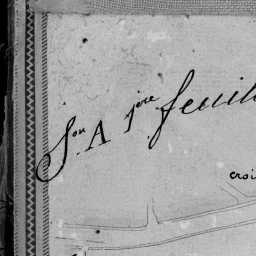 Son A 1ere feuil
croi